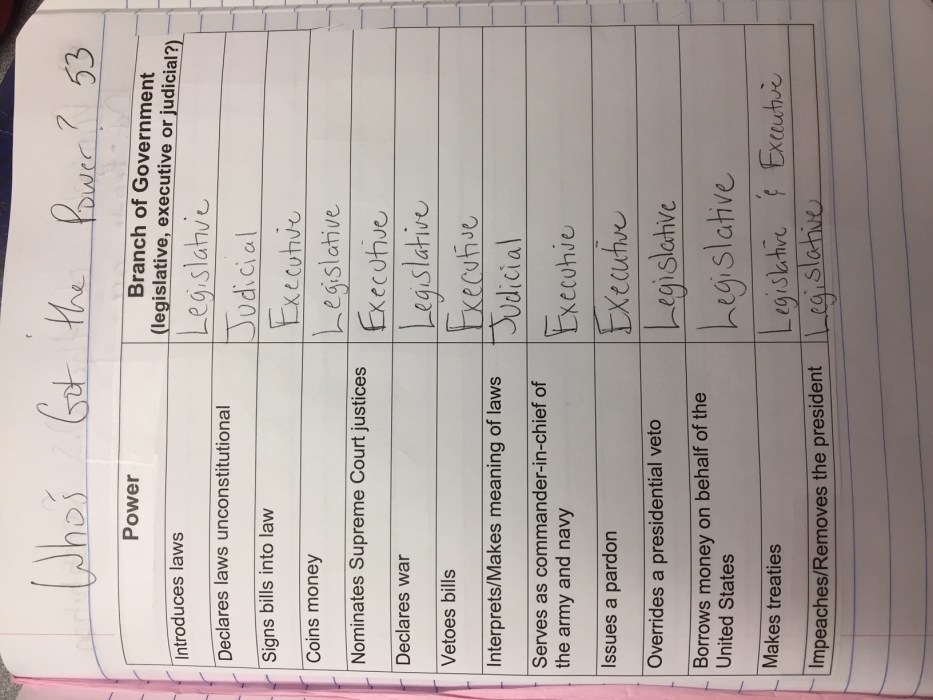 Who's Got the Power? 53
Power
Branch of Government
(legislative, executive or judicial?)
Introduces laws
Legislative
Declares laws unconstitutional
Judicial
Signs bills into law
Executive
Coins money
Legislative
Nominates Supreme Court justices
Executive
Declares war
Legislative
Vetoes bills
Executive
Interprets/Makes meaning of laws
Judicial
Serves as commander-in-chief of
the army and navy
Executive
Issues a pardon
Executive
Overrides a presidential veto
Legislative
Borrows money on behalf of the
United States
Legislative
Makes treaties
Legislative & Executive
Impeaches/Removes the president
Legislative